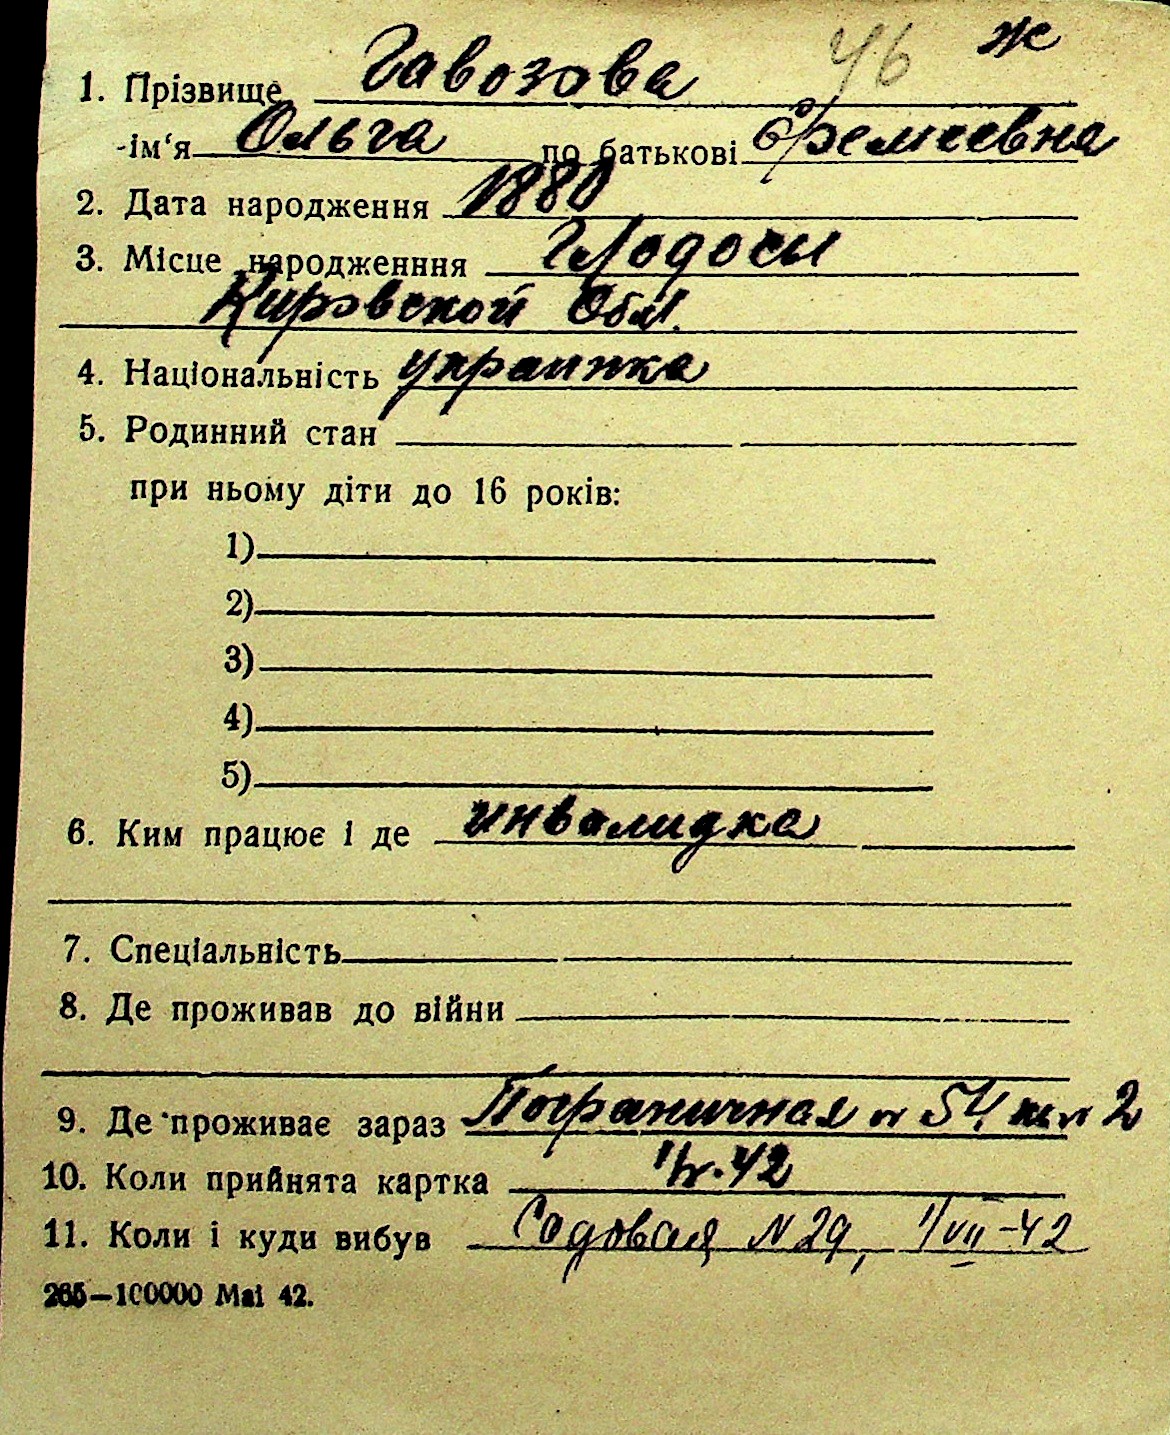 46 Ж
1. Прізвище Гавозова
ім‘я Ольга по батькові Єремеевна
2. Дата народження 1880
3. Місце народженння Глодосы
Кировской Обл.
4. Національність украинка
5. Родинний стан
при ньому діти до 16 років:
1)
2)
3)
4)
5)
6. Ким працює і де инвалидка
7. Спеціальність
8. Де проживав до війни
9. Де проживає зараз Пограничная N 54 кв 2
10. Коли прийнята картка 42
11. Коли і куди вибув Садовая N 29, 1/VII-42
265—100000 Mai 42.